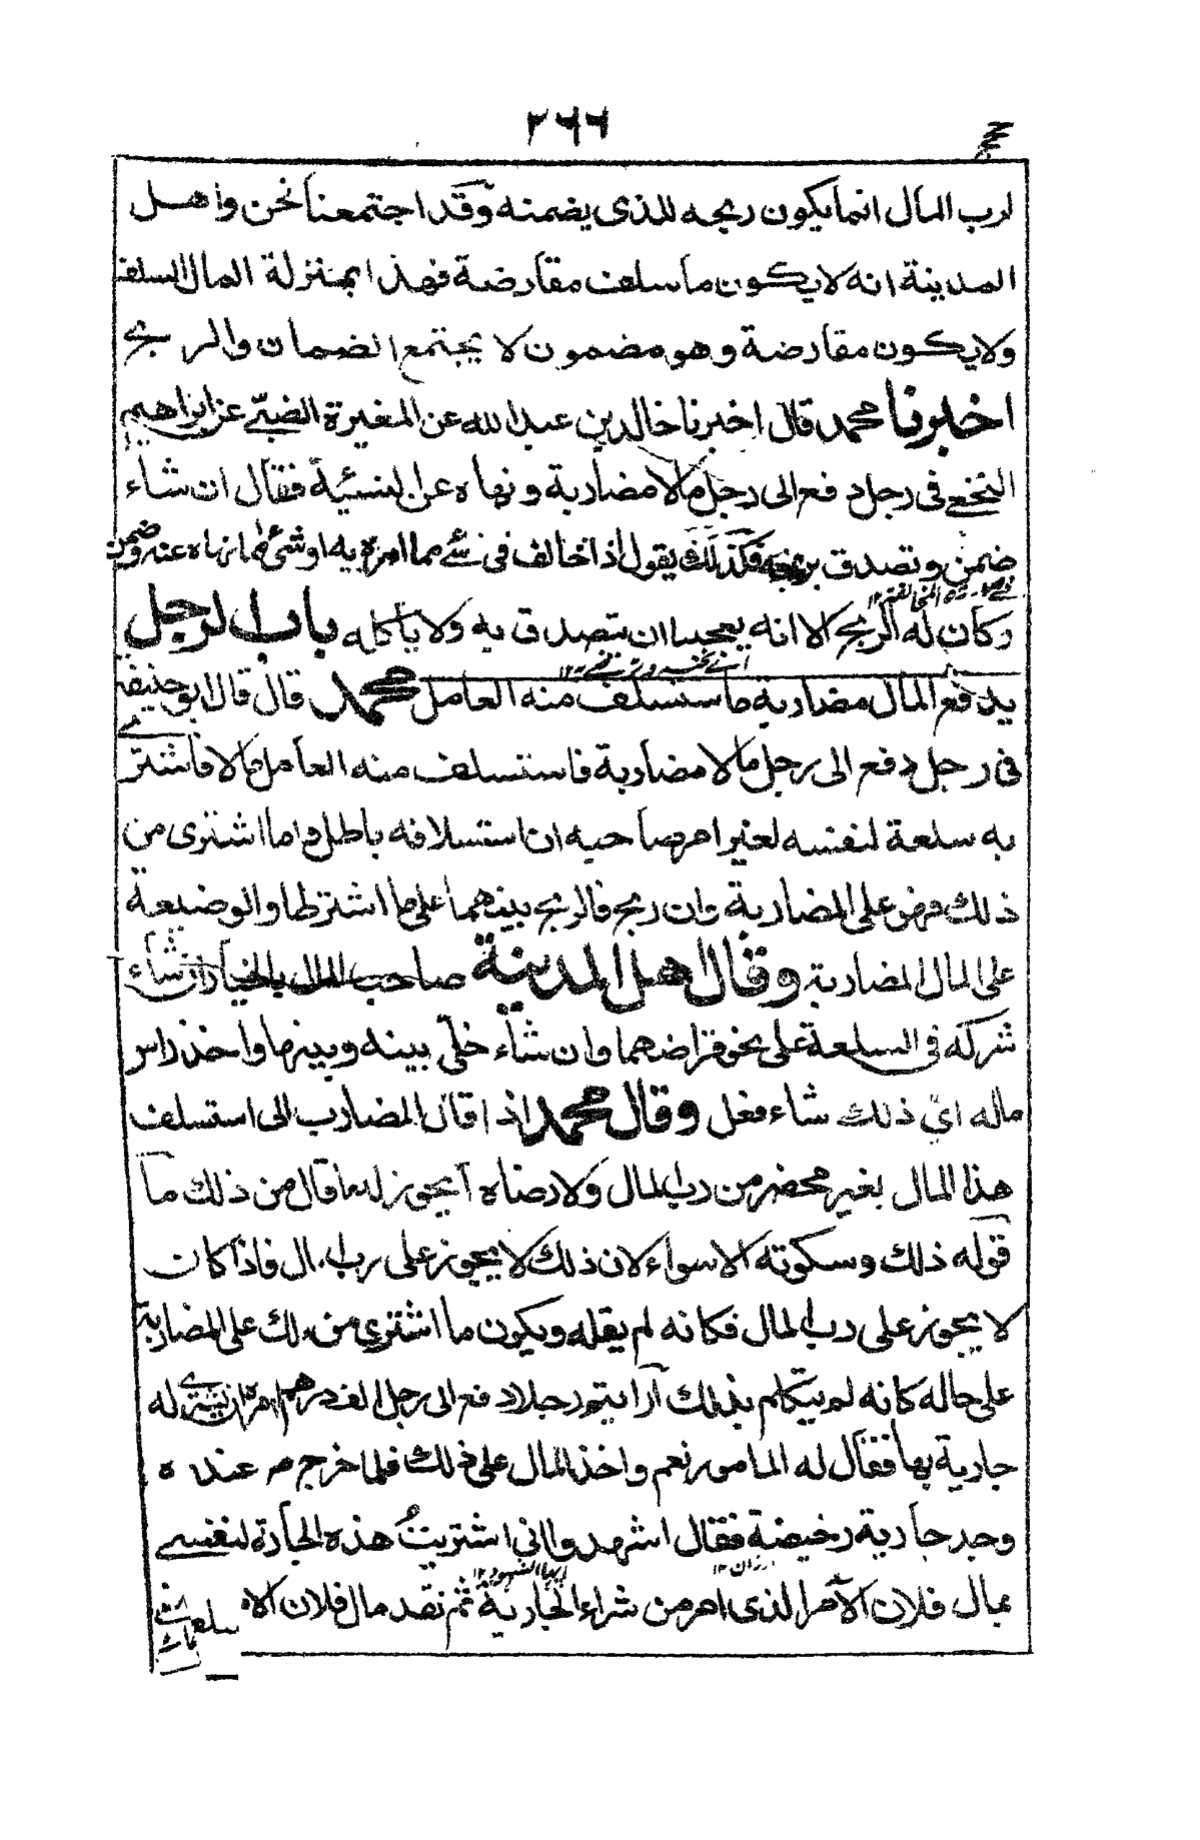 ٢٦٦
لرب المال انما يكون ربحه للذى يضمنه وقد اجتمعنا نحن واهل
المدينة انه لا يكون ما سلف مقارضة فهذا بمنزلة المال السلف
ولا يكون مقارضة وهو مضمون لا يجتمع الضمان والربح
اخبرنا محمد قال اخبرنا خالد بن عبد الله عن المغيرة الضبّى عن ابراهيم
النخعى فى رجل دفع الى رجل مالا مضاربة ونهاه عن النسيئة فقال ان شاء
ضمن وتصدق بربحه فكذلك يقول اذا خالف فى شئ مما امره به او شئ مما نهاه عنه وضمن
وكان له الربح الا انه يعجبنا ان يتصدق به ولا يأكله باب الرجل
يدفع المال مضاربة ما ستسلف منه العامل محمد قال قال ابو حنيفة
فى رجل دفع الى رجل مالا مضاربة فاستسلف منه العامل مالا فاشترى
به سلعة لنفسه لغير امر صاحبه ان استسلافه باطل وما اشترى من
ذلك فهو على المضاربة وان ربح فالربح بينهما على ما اشترطا والوضيعة
على المال المضاربة وقال اهل المدينة صاحب المال بالخيار ان شاء
شركه فى السلعة على نحو قراضهما وان شاء خلّى بينه وبينها واخذ راس
ماله اىّ ذلك شاء فعل وقال محمد اذا قال المضارب انى استسلف
هذا المال بغير محضر من رب المال ولا رضاه أيجوز له ما قال من ذلك ما
قوله ذلك وسكوته الا سواء لان ذلك لا يجوز على رب المال فاذا كان
لا يجوز على رب المال فكانه لم يقله ويكون ما اشترى من ذلك على المضاربة
على حاله كانه لم يتكلم بذلك أرايتم رجلا دفع الى رجل الف درهم امره ان يشترى له
جارية بها فقال له المامور نعم واخذ المال على ذلك فلما خرج من عنده
وجد جارية رخيصة فقال اشهدوا انى اشتريتُ هذه الجارية لنفسى
بمال فلان الآمر الذى امر من شراء الجارية ثم نقد مال فلان